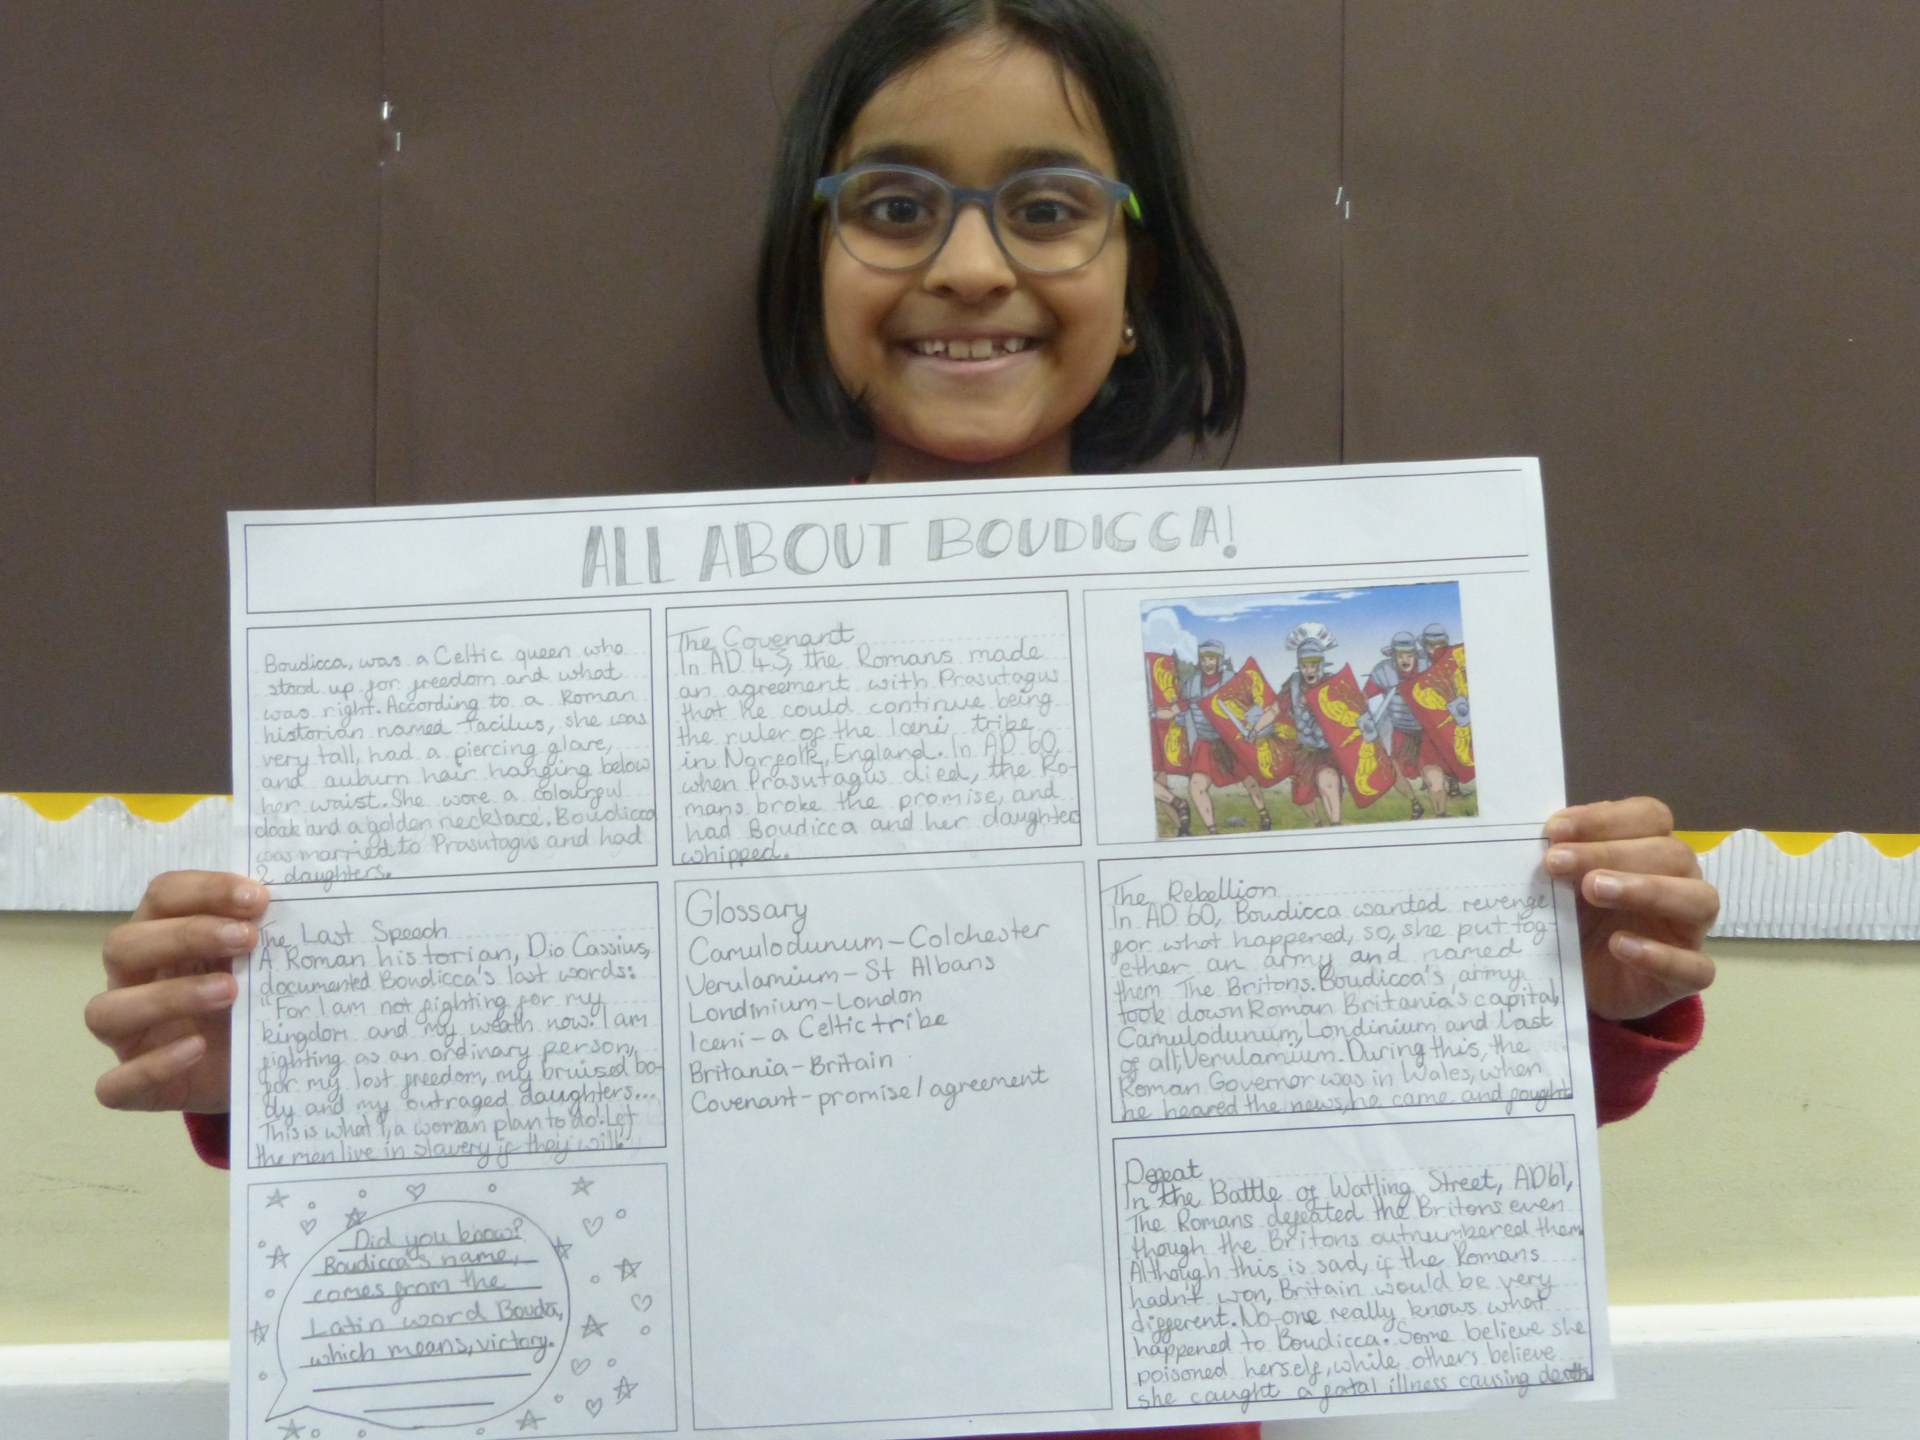 ALL ABOUT BOUDICCA!
Boudicca, was a Celtic queen who
stood up for freedom and what
was right. According to a Roman
historian named Tacilus, she was
very tall, had a piercing glare,
and auburn hair hanging below
her waist. She wore a colourful
cloak and a golden necklace. Boudicca
was married to Prasutagus and had
2 daughters.
The Covenant
In AD 43, the Romans made
an agreement with Prasutagus
that he could continue being
the ruler of the Iceni, tribe
in Norfolk, England. In AD 60,
when Prasutagus died, the Ro-
mans broke the promise, and
had Boudicca and her daughters
whipped.
The Last Speech
A Roman historian, Dio Cassius,
documented Boudicca's last words:
"For I am not fighting for my
kingdom and my wealth now. I am
fighting as an ordinary person,
for my lost freedom, my bruised bo-
dy and my outraged daughters...
This is what I, a woman plan to do! Let
the men live in slavery if they will."
Glossary
Camulodunum – Colchester
Verulamium – St Albans
Londinium – London
Iceni – a Celtic tribe
Britania – Britain
Covenant – promise/agreement
The Rebellion
In AD 60, Boudicca wanted revenge
for what happened, so, she put tog-
ether an army and named
them The Britons. Boudicca's army
took down Roman Britania's capital,
Camulodunum, Londinium and last
of all, Verulamium. During this, the
Roman Governor was in Wales, when
he heared the news, he came and fought
Did you know?
Boudicca's name,
comes from the
Latin word Bouda,
which means, victory.
Defeat
In the Battle of Watling Street, AD61,
The Romans defeated the Britons even
though the Britons outnumbered them
Although this is sad, if the Romans
hadn't won, Britain would be very
different. No-one really knows what
happened to Boudicca. Some believe she
poisoned herself, while others believe
she caught a fatal illness causing death